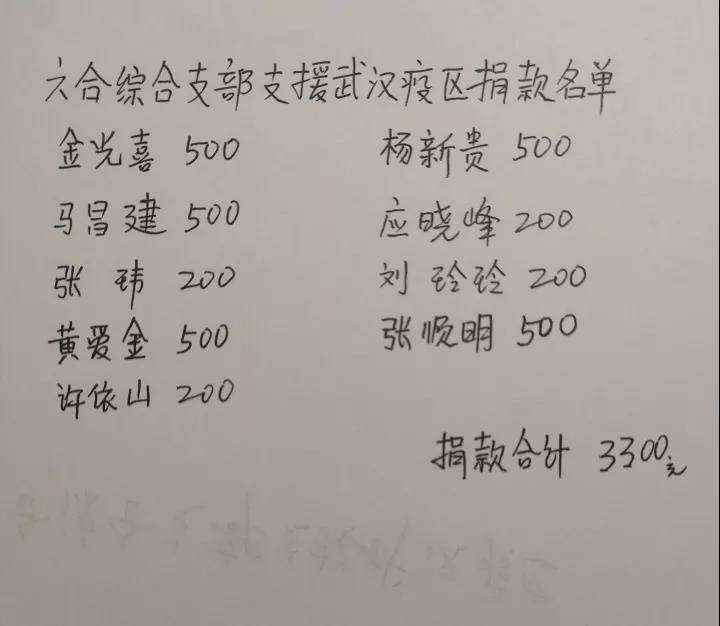 六合综合支部支援武汉疫区捐款名单
金光喜 500 杨新贵 500
马昌建 500 应晓峰 200
张 玮 200 刘玲玲 200
黄爱金 500 张顺明 500
许依山 200
捐款合计 3300元